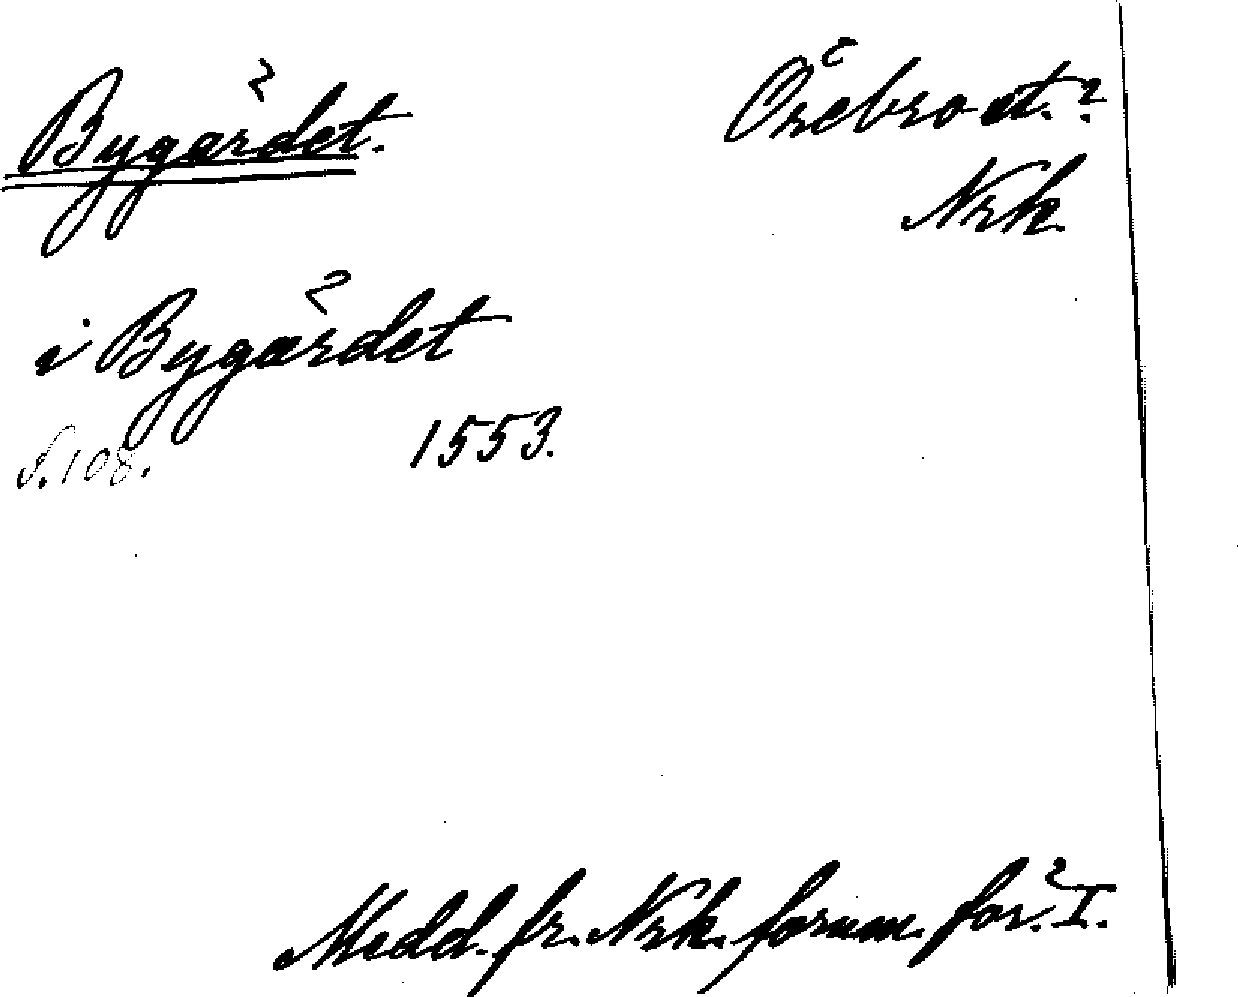 Bygärdet. Örebro st.?
Nrk.
i Bygärdet
S. 108. 1553.
Medd. fr. Nrk. fornm. för. I.